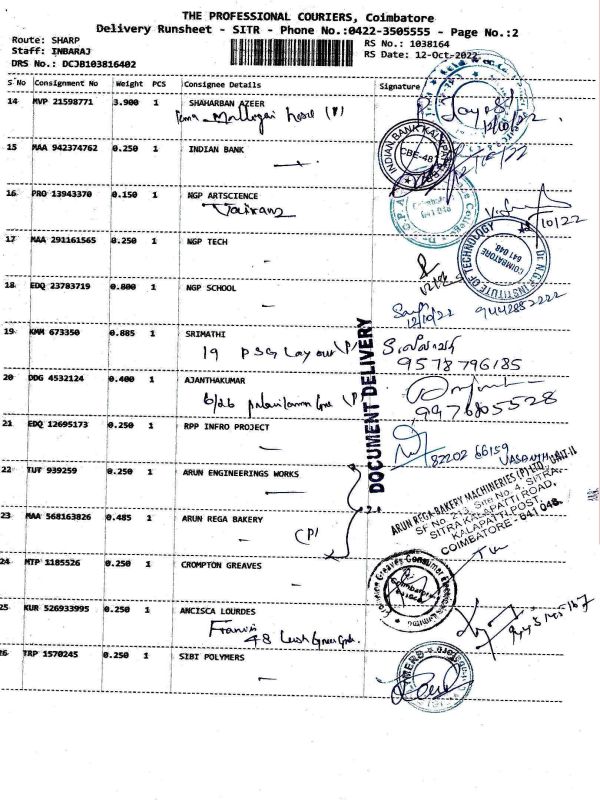 THE PROFESSIONAL COURIERS, Coimbatore
Delivery Runsheet - SITR - Phone No.:0422-3505555 - Page No.:2
Route: SHARP
RS No.: 1038164
Staff: INBARAJ
RS Date: 12-Oct-2022
DRS No.: DCJB103816402
S No Consignment No Weight PCS Consignee Details Signature
14 MVP 21598771 3.900 1 SHAHARBAN AZEER
12/10/22
15 MAA 942374762 0.250 1 INDIAN BANK
INDIAN BANK KALAPATTI
CBE-48
16 PRO 13943370 0.150 1 NGP ARTSCIENCE
641 048
17 MAA 291161565 0.250 1 NGP TECH
Dr. N.G.P. INSTITUTE OF TECHNOLOGY
COIMBATORE
641 048.
18 EDQ 23783719 0.800 1 NGP SCHOOL
12/10/22
9442852222
19 KMM 673350 0.885 1 SRIMATHI
19 PSG Layout (P)
9578796185
20 DDG 4532124 0.400 1 AJANTHAKUMAR
6/26 (P)
9976805528
DOCUMENT DELIVERY
21 EDQ 12695173 0.250 1 RPP INFRO PROJECT
82202 66159 VASANTH
22 TUT 939259 0.250 1 ARUN ENGINEERINGS WORKS
ARUN REGA BAKERY MACHINERIES (P) LTD., UNIT-II
SF No. 213, Site No. 4, SITRA
SITRA KALAPATTI ROAD,
KALAPATTI POST,
COIMBATORE - 641 048.
23 MAA 568163826 0.485 1 ARUN REGA BAKERY
(P)
24 MTP 1185526 0.250 1 CROMPTON GREAVES
Crompton Greaves Consumer Electricals Limited
Coimbatore
25 KUR 526933995 0.250 1 ANCISCA LOURDES
Francis
48
26 TRP 1570245 0.250 1 SIBI POLYMERS